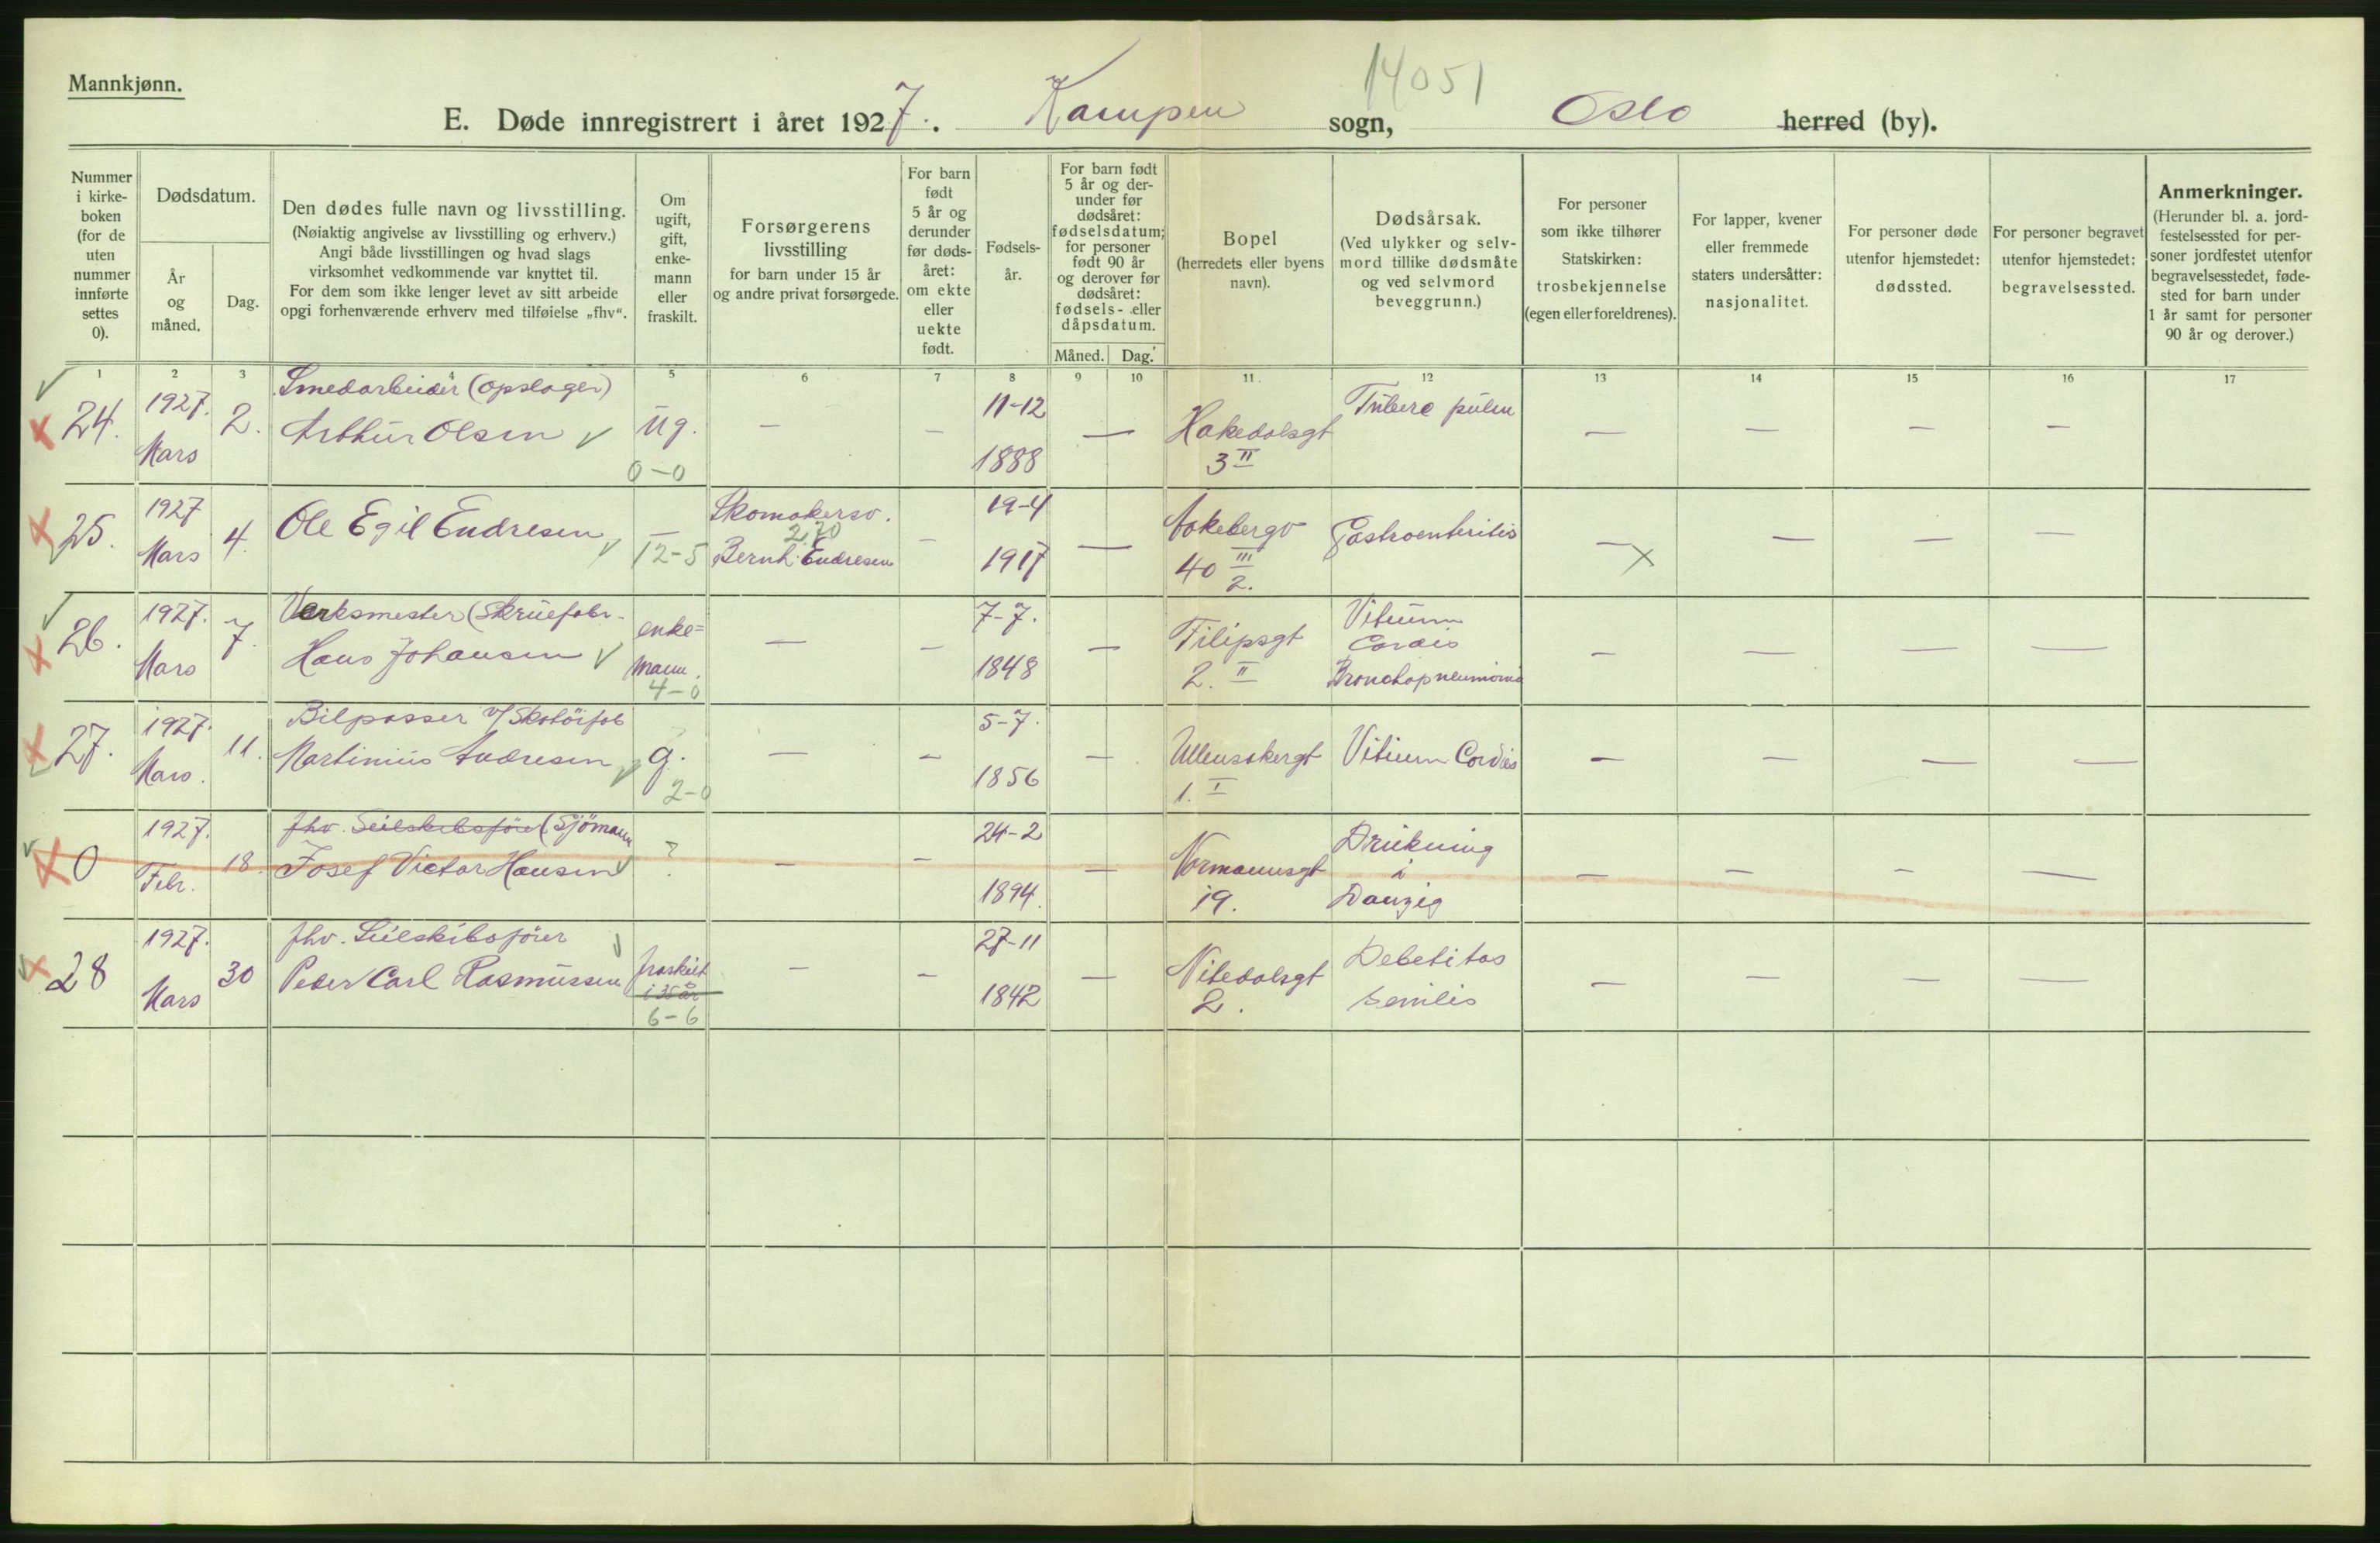 Mannkjønn.
14051
E. Døde innregistrert i året 1927. Kampen sogn, Oslo herred (by).
Nummer i kirkeboken (for de uten nummer innførte settes 0).
Dødsdatum.
År og måned.
Dag.
Den dødes fulle navn og livsstilling.
(Nøiaktig angivelse av livsstilling og erhverv.)
Angi både livsstillingen og hvad slags
virksomhet vedkommende var knyttet til.
For dem som ikke lenger levet av sitt arbeide
opgi forhenværende erhverv med tilføielse „fhv“.
Om ugift, gift, enkemann eller fraskilt.
Forsørgerens livsstilling
for barn under 15 år
og andre privat forsørgede.
For barn født 5 år og derunder før dødsåret: om ekte eller uekte født.
Fødselsår.
For barn født 5 år og derunder før dødsåret: fødselsdatum; for personer født 90 år og derover før dødsåret: fødsels- eller dåpsdatum.
Måned. Dag.
Bopel
(herredets eller byens navn).
Dødsårsak.
(Ved ulykker og selvmord tillike dødsmåte og ved selvmord beveggrunn.)
For personer som ikke tilhører Statskirken: trosbekjennelse (egen eller foreldrenes).
For lapper, kvener eller fremmede staters undersåtter: nasjonalitet.
For personer døde utenfor hjemstedet: dødssted.
For personer begravet utenfor hjemstedet: begravelsessted.
Anmerkninger.
(Herunder bl. a. jordfestelsessted for personer jordfestet utenfor begravelsesstedet, fødested for barn under 1 år samt for personer 90 år og derover.)
1 2 3 5 6 7 8 9 10 11. 12 13 14 15 16 17
Smedarbeider (opslager)
24. 1927. Mars 2. Arthur Olsen ug. 0-0 — — 11-12 1888 — Hakedalsgt 3 II Tuberc pulm — — — —
25. 1927 Mars 4. Ole Egil Endresen — 12-5 Skomakersv. 2.70 Bernh. Endresen — 19-4 1917 — Aakebergv 40 III 2. Gastroenteritis — — — —
Verksmester (Skruefabr.
26. 1927. Mars 7. Hans Johansen enkemann. 4-0 — — 7-7. 1848 — Filipsgt 2. II Vitium Cordis Bronchopneumonia — — — —
Bilpasser v/Skotöifab
27. 1927. Mars. 11. Martinius Andresen g. 2-0 — — 5-7. 1856 — Ullensakergt 1. I Vitium Cordis — — — —
fhv. Seilskibsförer (Sjömann
0 1927. Febr. 18. Josef Victor Hansen ? — — 24-2 1894. — Normannsgt 19. Drukning i Danzig — — — —
fhv. Seilskibsförer
28 1927. Mars 30 Peder Carl Rasmussen fraskilt i 35 år 6-6 — — 27-11 1842 — Nitedalsgt 2. Debetitas senilis — — — —